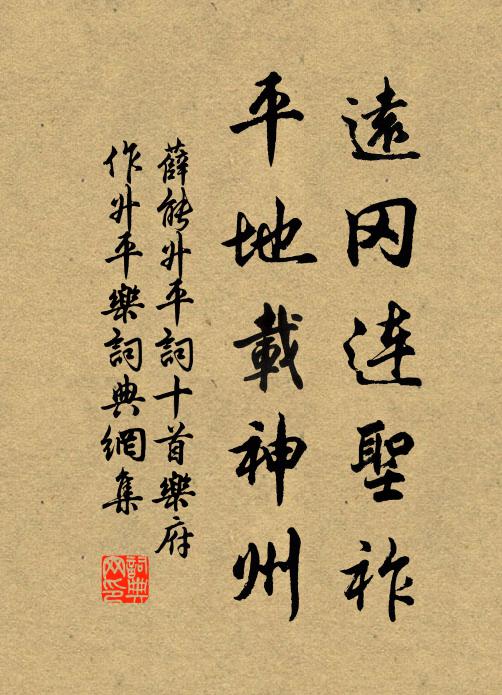 遠冈连聖祚
平地載神州
薛能升平詞十首樂府
作升平樂詞典網集
詞典网印